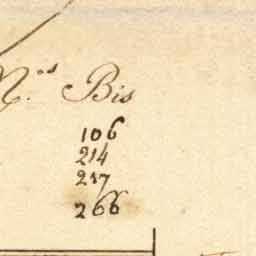 N.os Bis
106
214
217
266